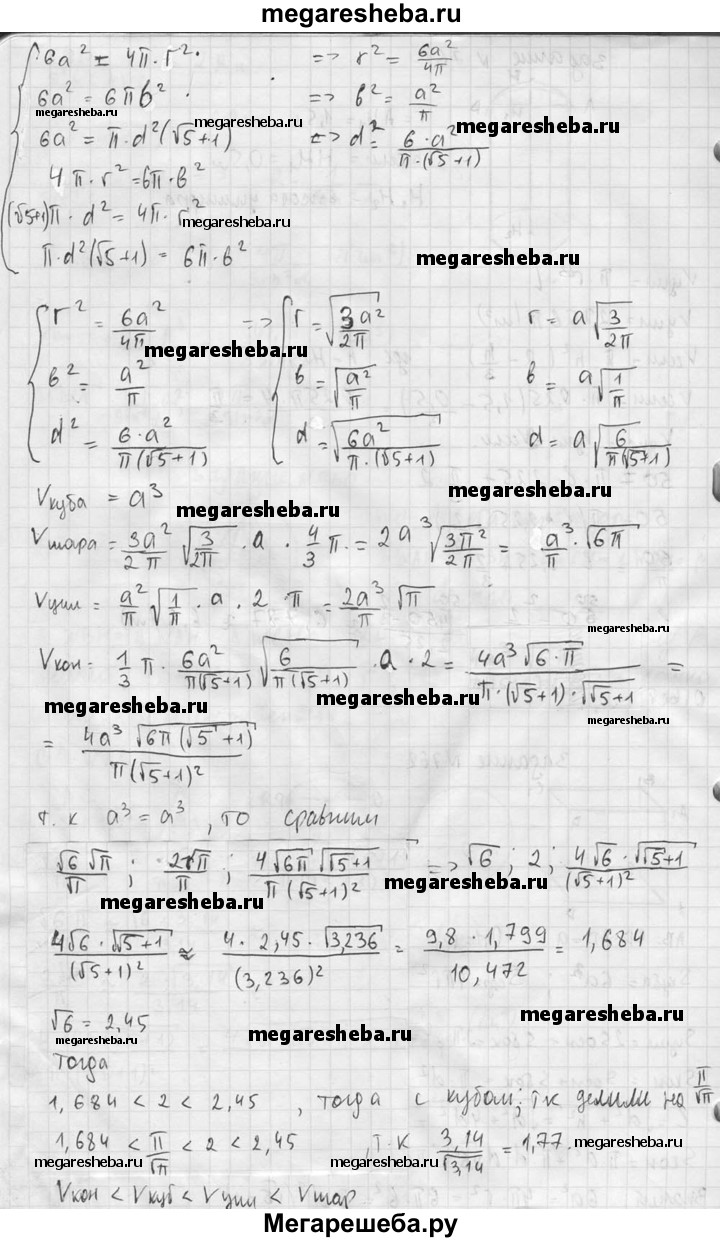 megaresheba.ru
6a² = 4π · r² · => r² = 6a²/4π
6a² = 6πв² · => в² = a²/π
megaresheba.ru megaresheba.ru megaresheba.ru
6a² = π · d²(√5+1) => d² = 6·a²/π·(√5+1)
4π · r² = 6π · в²
(√5+1)π · d² = 4π · r² megaresheba.ru
π · d²(√5+1) = 6π · в² megaresheba.ru
r² = 6a²/4π => r = √(3a²/2π) r = a√(3/2π)
megaresheba.ru megaresheba.ru
в² = a²/π в = √(a²/π) в = a√(1/π)
d² = 6·a²/π(√5+1) d = √(6a²/π·(√5+1)) d = a√(6/π(√5+1))
Vкуба = a³
megaresheba.ru megaresheba.ru
Vшара = 3a²/2π √(3/2π) · a · 4/3 π = 2a³√(3π²/2π) = a³/π · √6π
Vцил = a²/π √(1/π) · a · 2 π = 2a³/π √π
megaresheba.ru
Vкон = 1/3 π · 6a²/π(√5+1) √(6/π(√5+1)) · a · 2 = 4a³√(6·π)/π·(√5+1)·√(√5+1) =
megaresheba.ru megaresheba.ru megaresheba.ru
= 4a³ √(6π(√5+1))/π(√5+1)²
т. к a³ = a³ , то сравним
√6 √π/π ; 2√π/π ; 4√6π √(√5+1)/π(√5+1)² => √6 ; 2 ; 4√6 · √(√5+1)/(√5+1)²
megaresheba.ru megaresheba.ru
4√6 · √(√5+1)/(√5+1)² ≈ 4 · 2,45 · √3,236/(3,236)² = 9,8 · 1,799/10,472 = 1,684
megaresheba.ru
√6 = 2,45
megaresheba.ru megaresheba.ru
Тогда
1,684 < 2 < 2,45 , тогда с кубом; тк делили на π/√π
1,684 < π/√π < 2 < 2,45 , т.к 3,14/√3,14 = 1,77.
megaresheba.ru megaresheba.ru megaresheba.ru
Vкон < Vкуб < Vцил < Vшар
Мегарешеба.ру